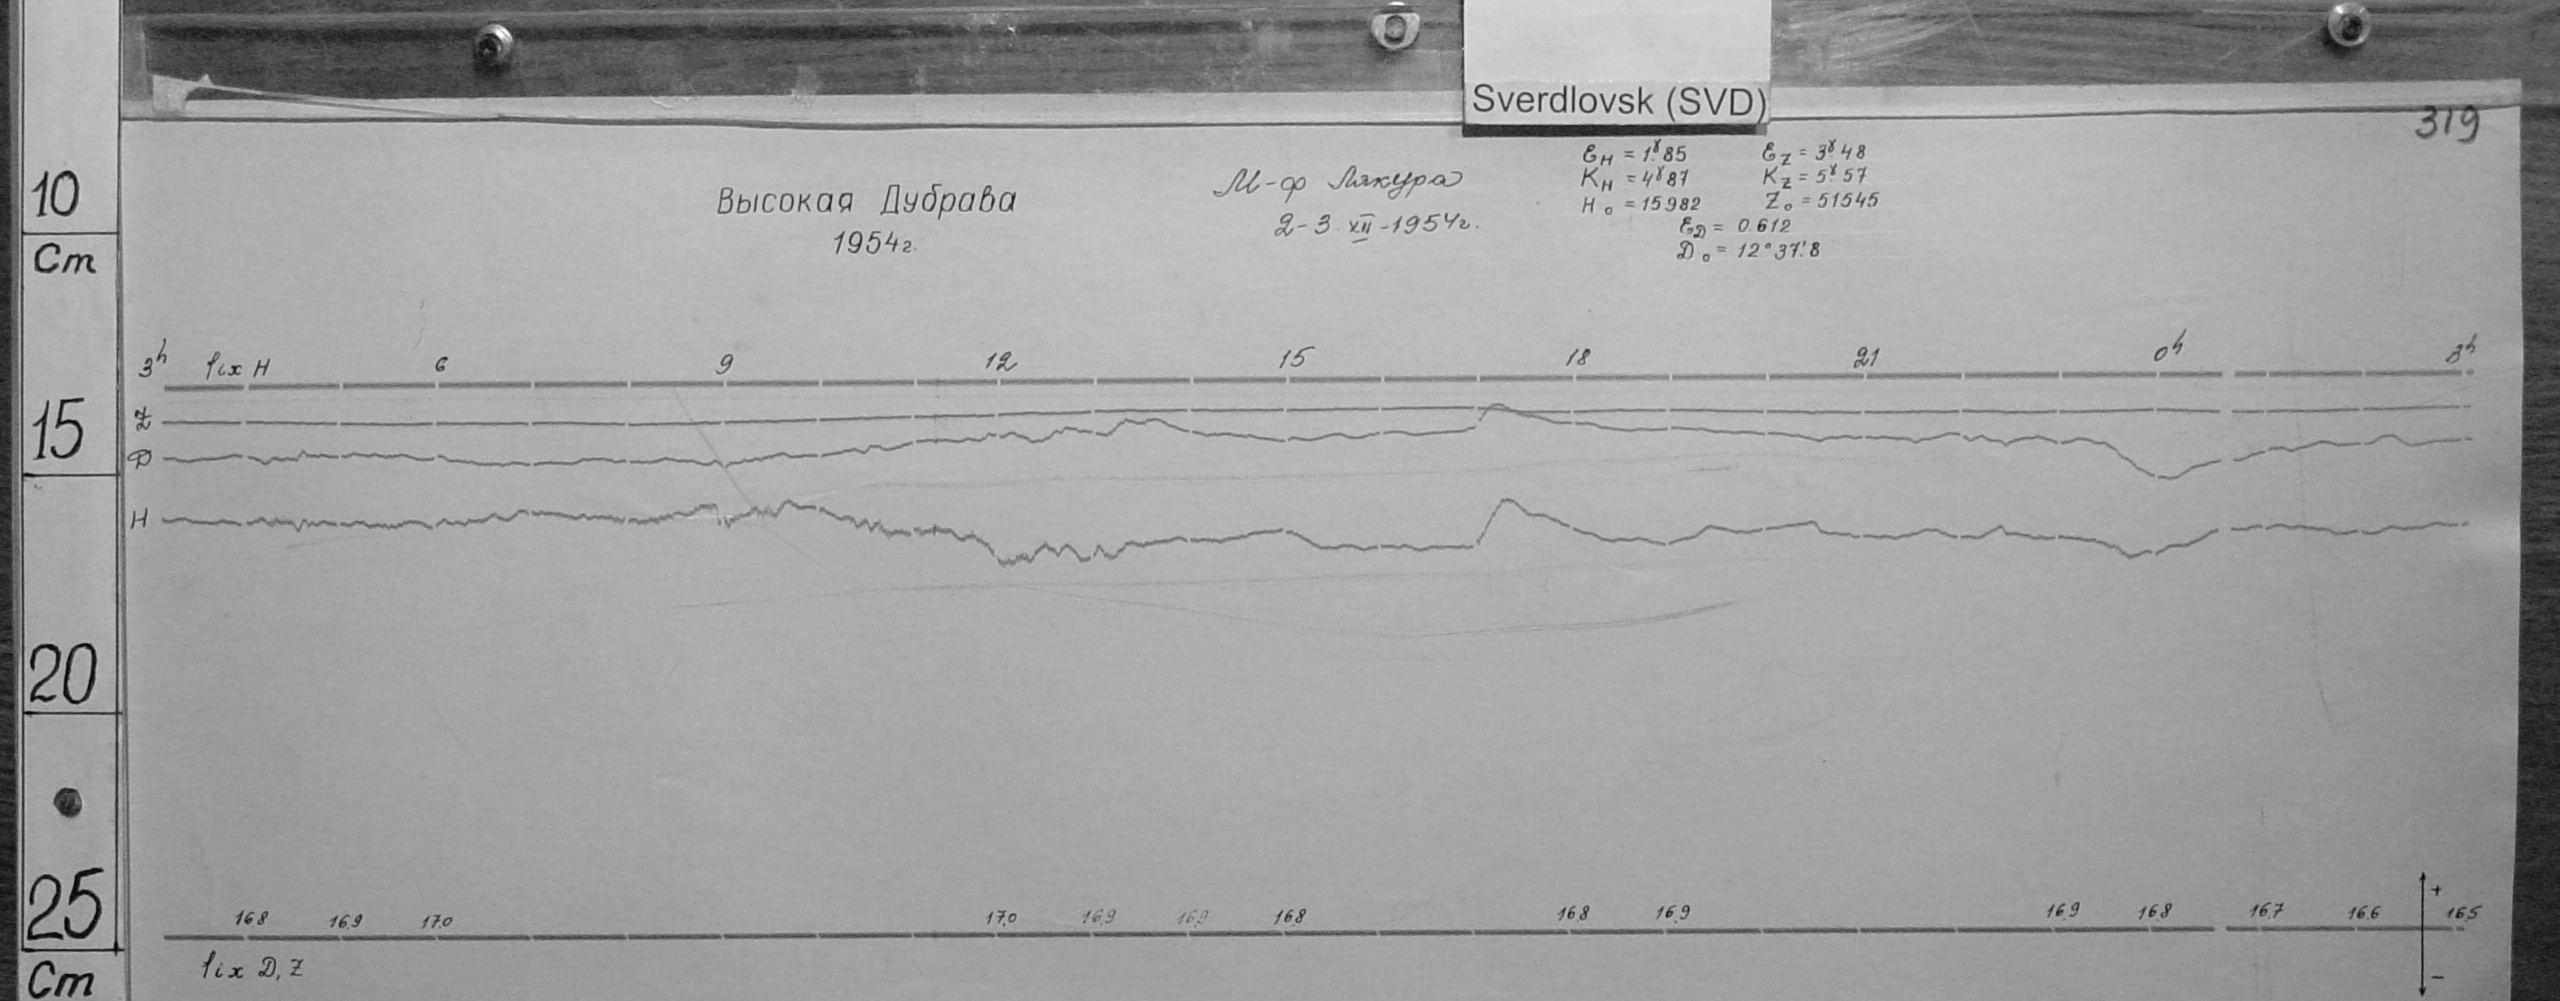 Sverdlovsk (SVD)
319
Высокая Дубрава
1954г.
М-ф Лякура
2-3 XII-1954г.
ℰH = 1ˠ.85 ℰZ = 3ˠ.48
KH = 4ˠ.87 KZ = 5ˠ.57
H₀ = 15982 Z₀ = 51545
ℰD = 0.612
D₀ = 12°37'.8
10
Cm
15
20
25
Cm
3h fix H 6 9 12 15 18 21 0h 3h
Z
D
H
16.8 16.9 17.0 17.0 16.9 16.9 16.8 16.8 16.9 16.9 16.8 16.7 16.6 16.5
+
-
fix D, Z